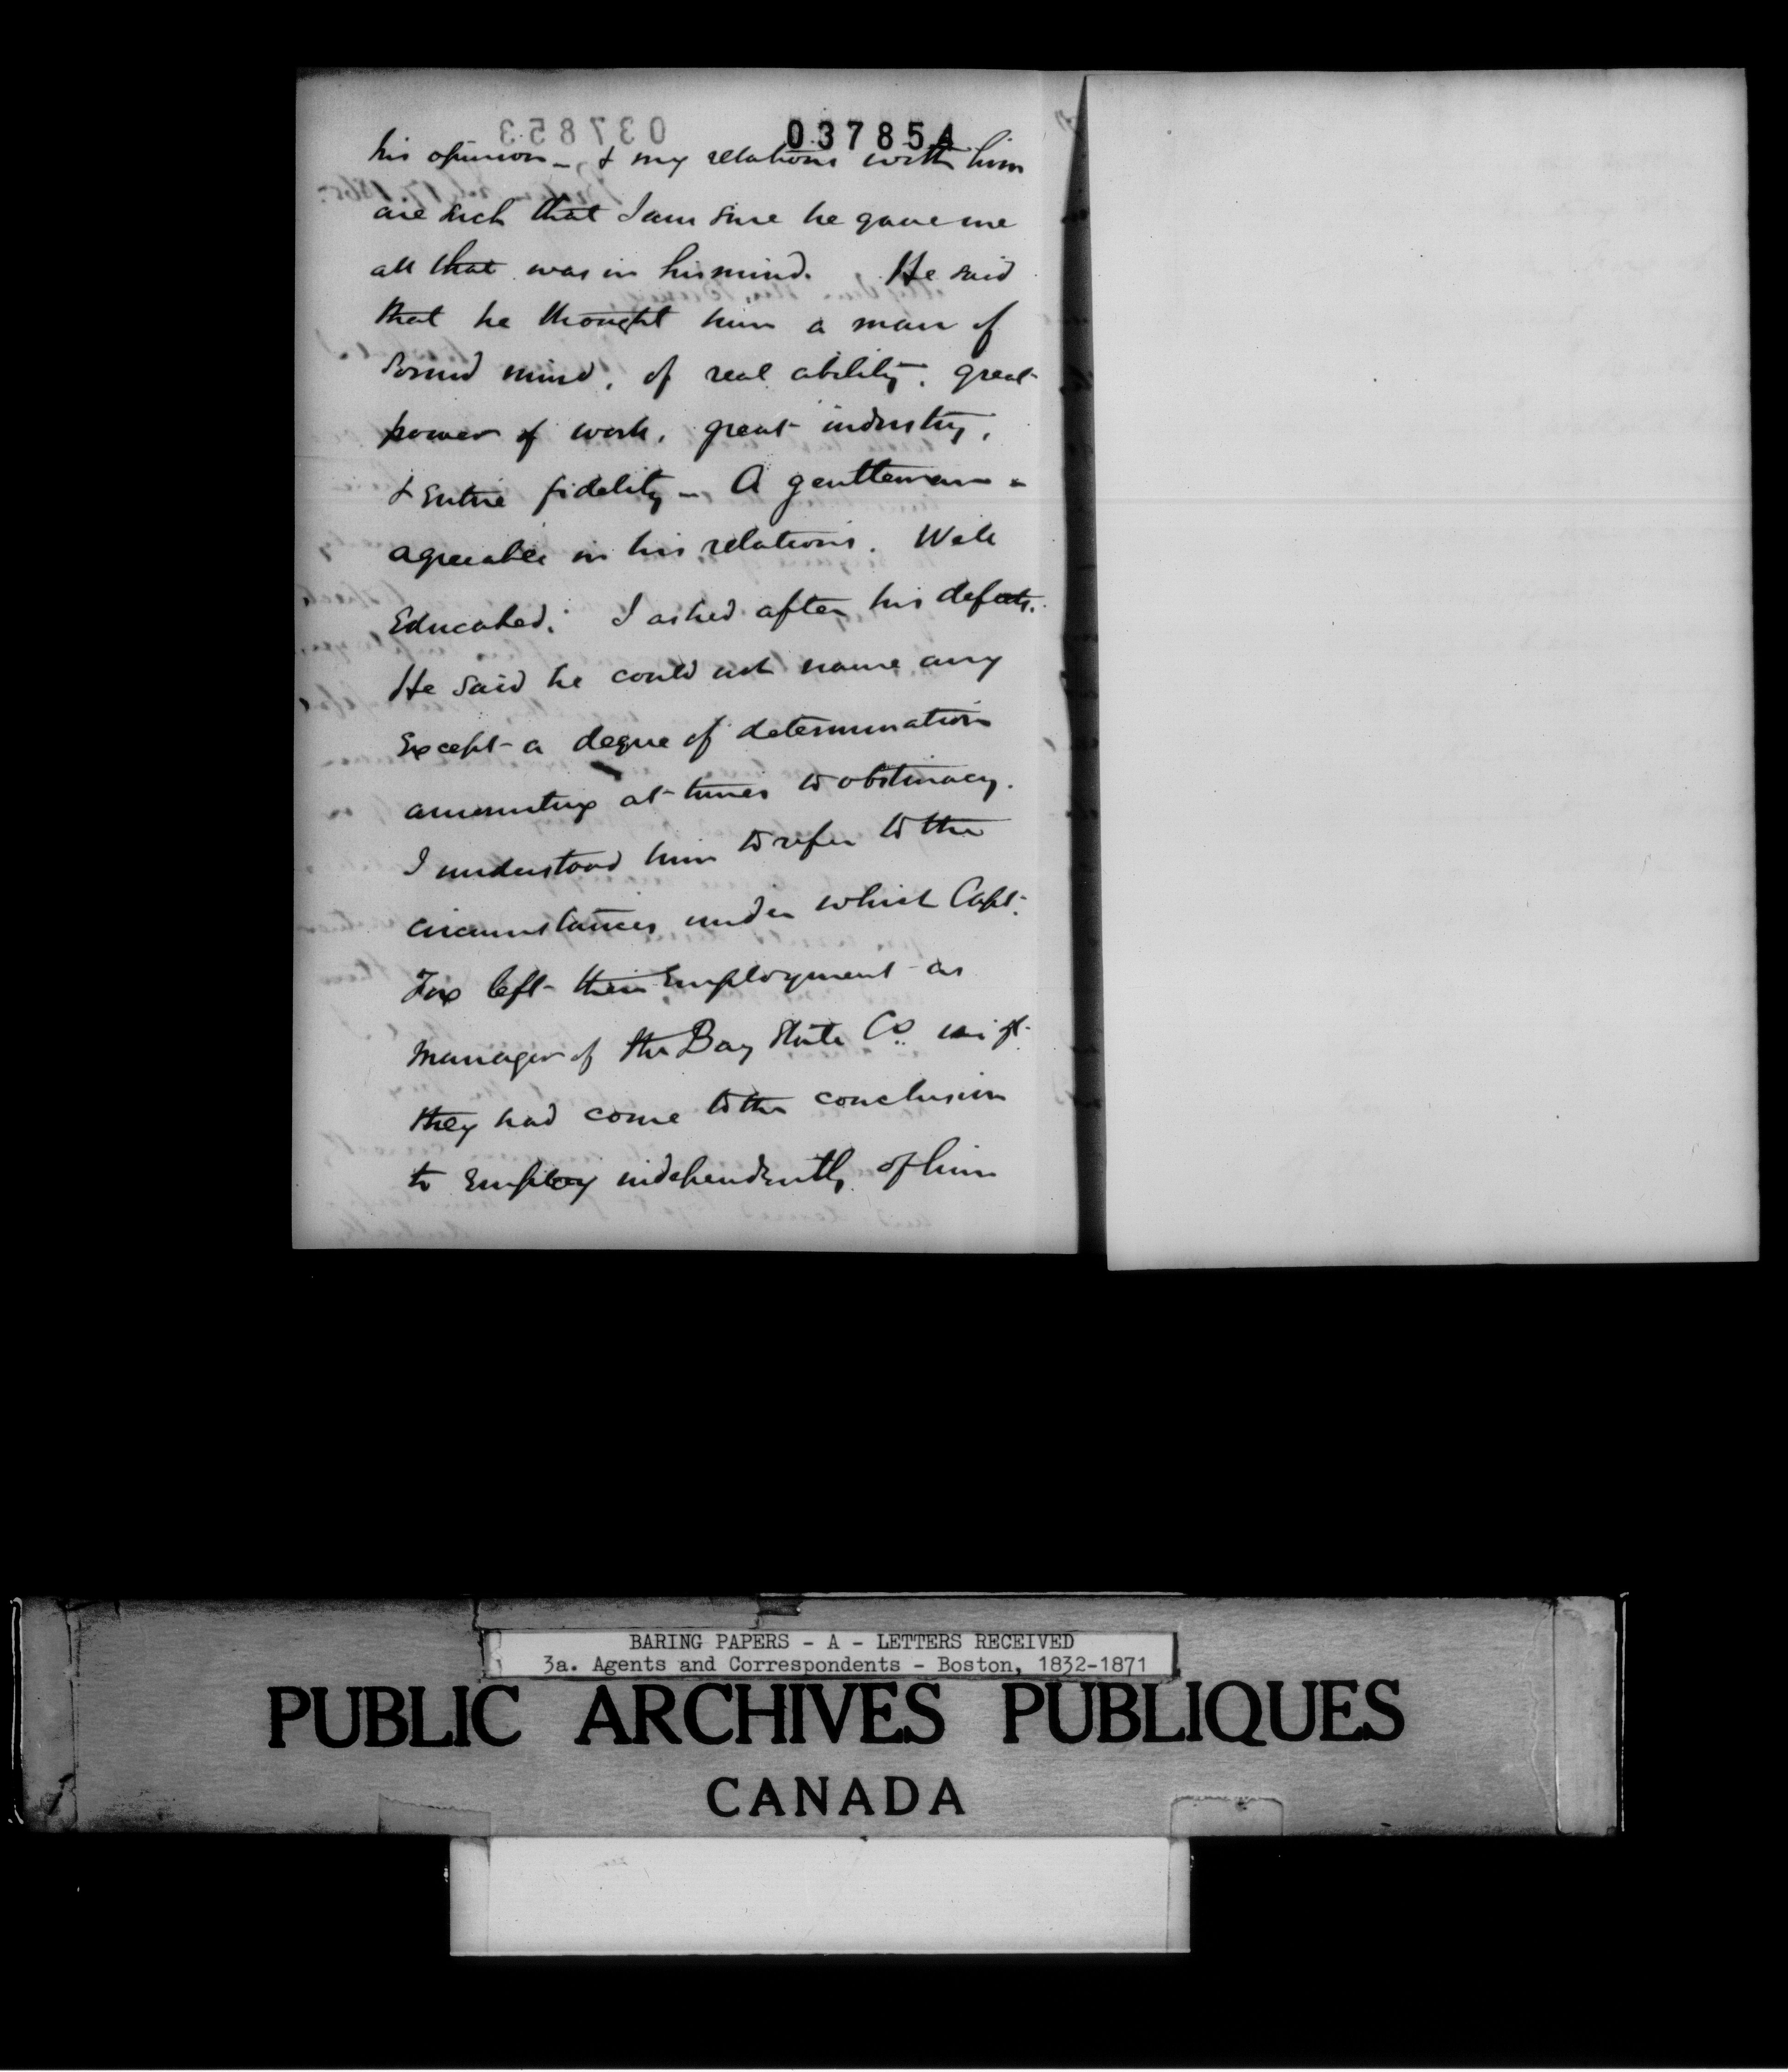 037853
037854
his opinion – & my relations with him
are such that I am sure he gave me
all that was in his mind. He said
that he thought him a man of
sound mind, of real ability, great
power of work, great industry,
& entire fidelity – A gentleman –
agreeable in his relations. Well
Educated. I asked after his defects.
He said he could not name any
Except a degree of determination
amounting at times to obstinacy.
I understood him to refer to the
circumstances under which Capt.
Fox left their Employment as
Manager of the Bay State Co.
they had come to the conclusion
to Employ independently of him
BARING PAPERS - A - LETTERS RECEIVED
3a. Agents and Correspondents - Boston, 1832-1871
PUBLIC ARCHIVES PUBLIQUES
CANADA